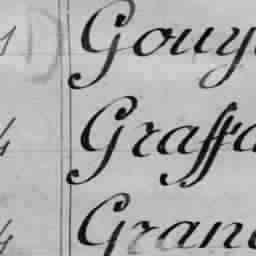 1 Gouy
4 Graffa
4 Gran